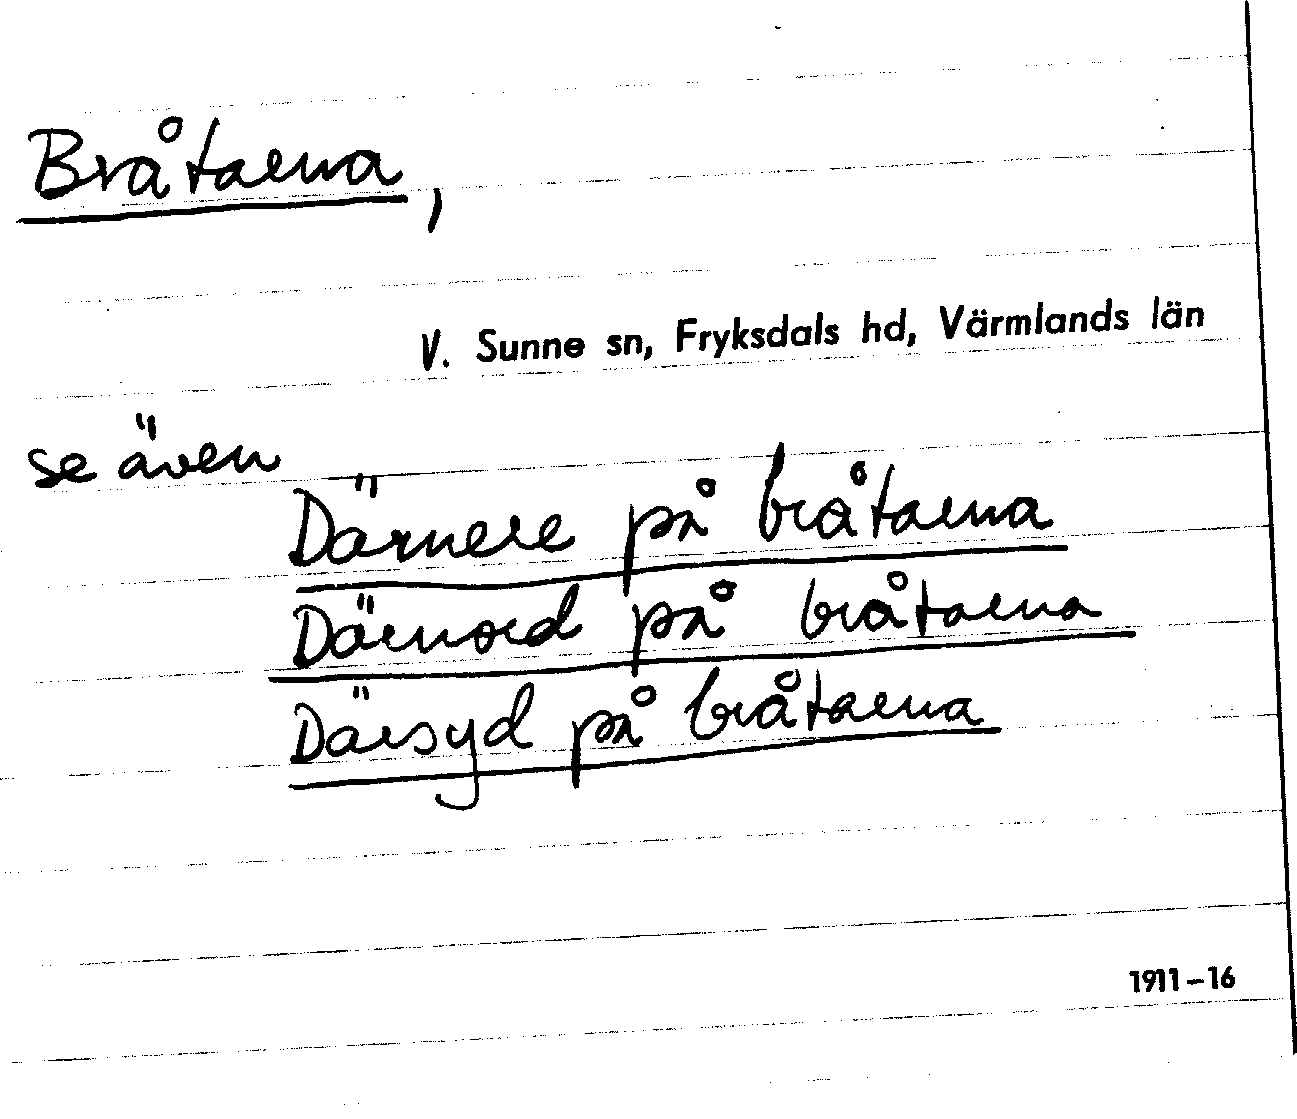 Bråtarna,
V. Sunne sn, Fryksdals hd, Värmlands län
se även
Därnere på bråtarna
Därnord på bråtarna
Därsyd på bråtarna
1911-16